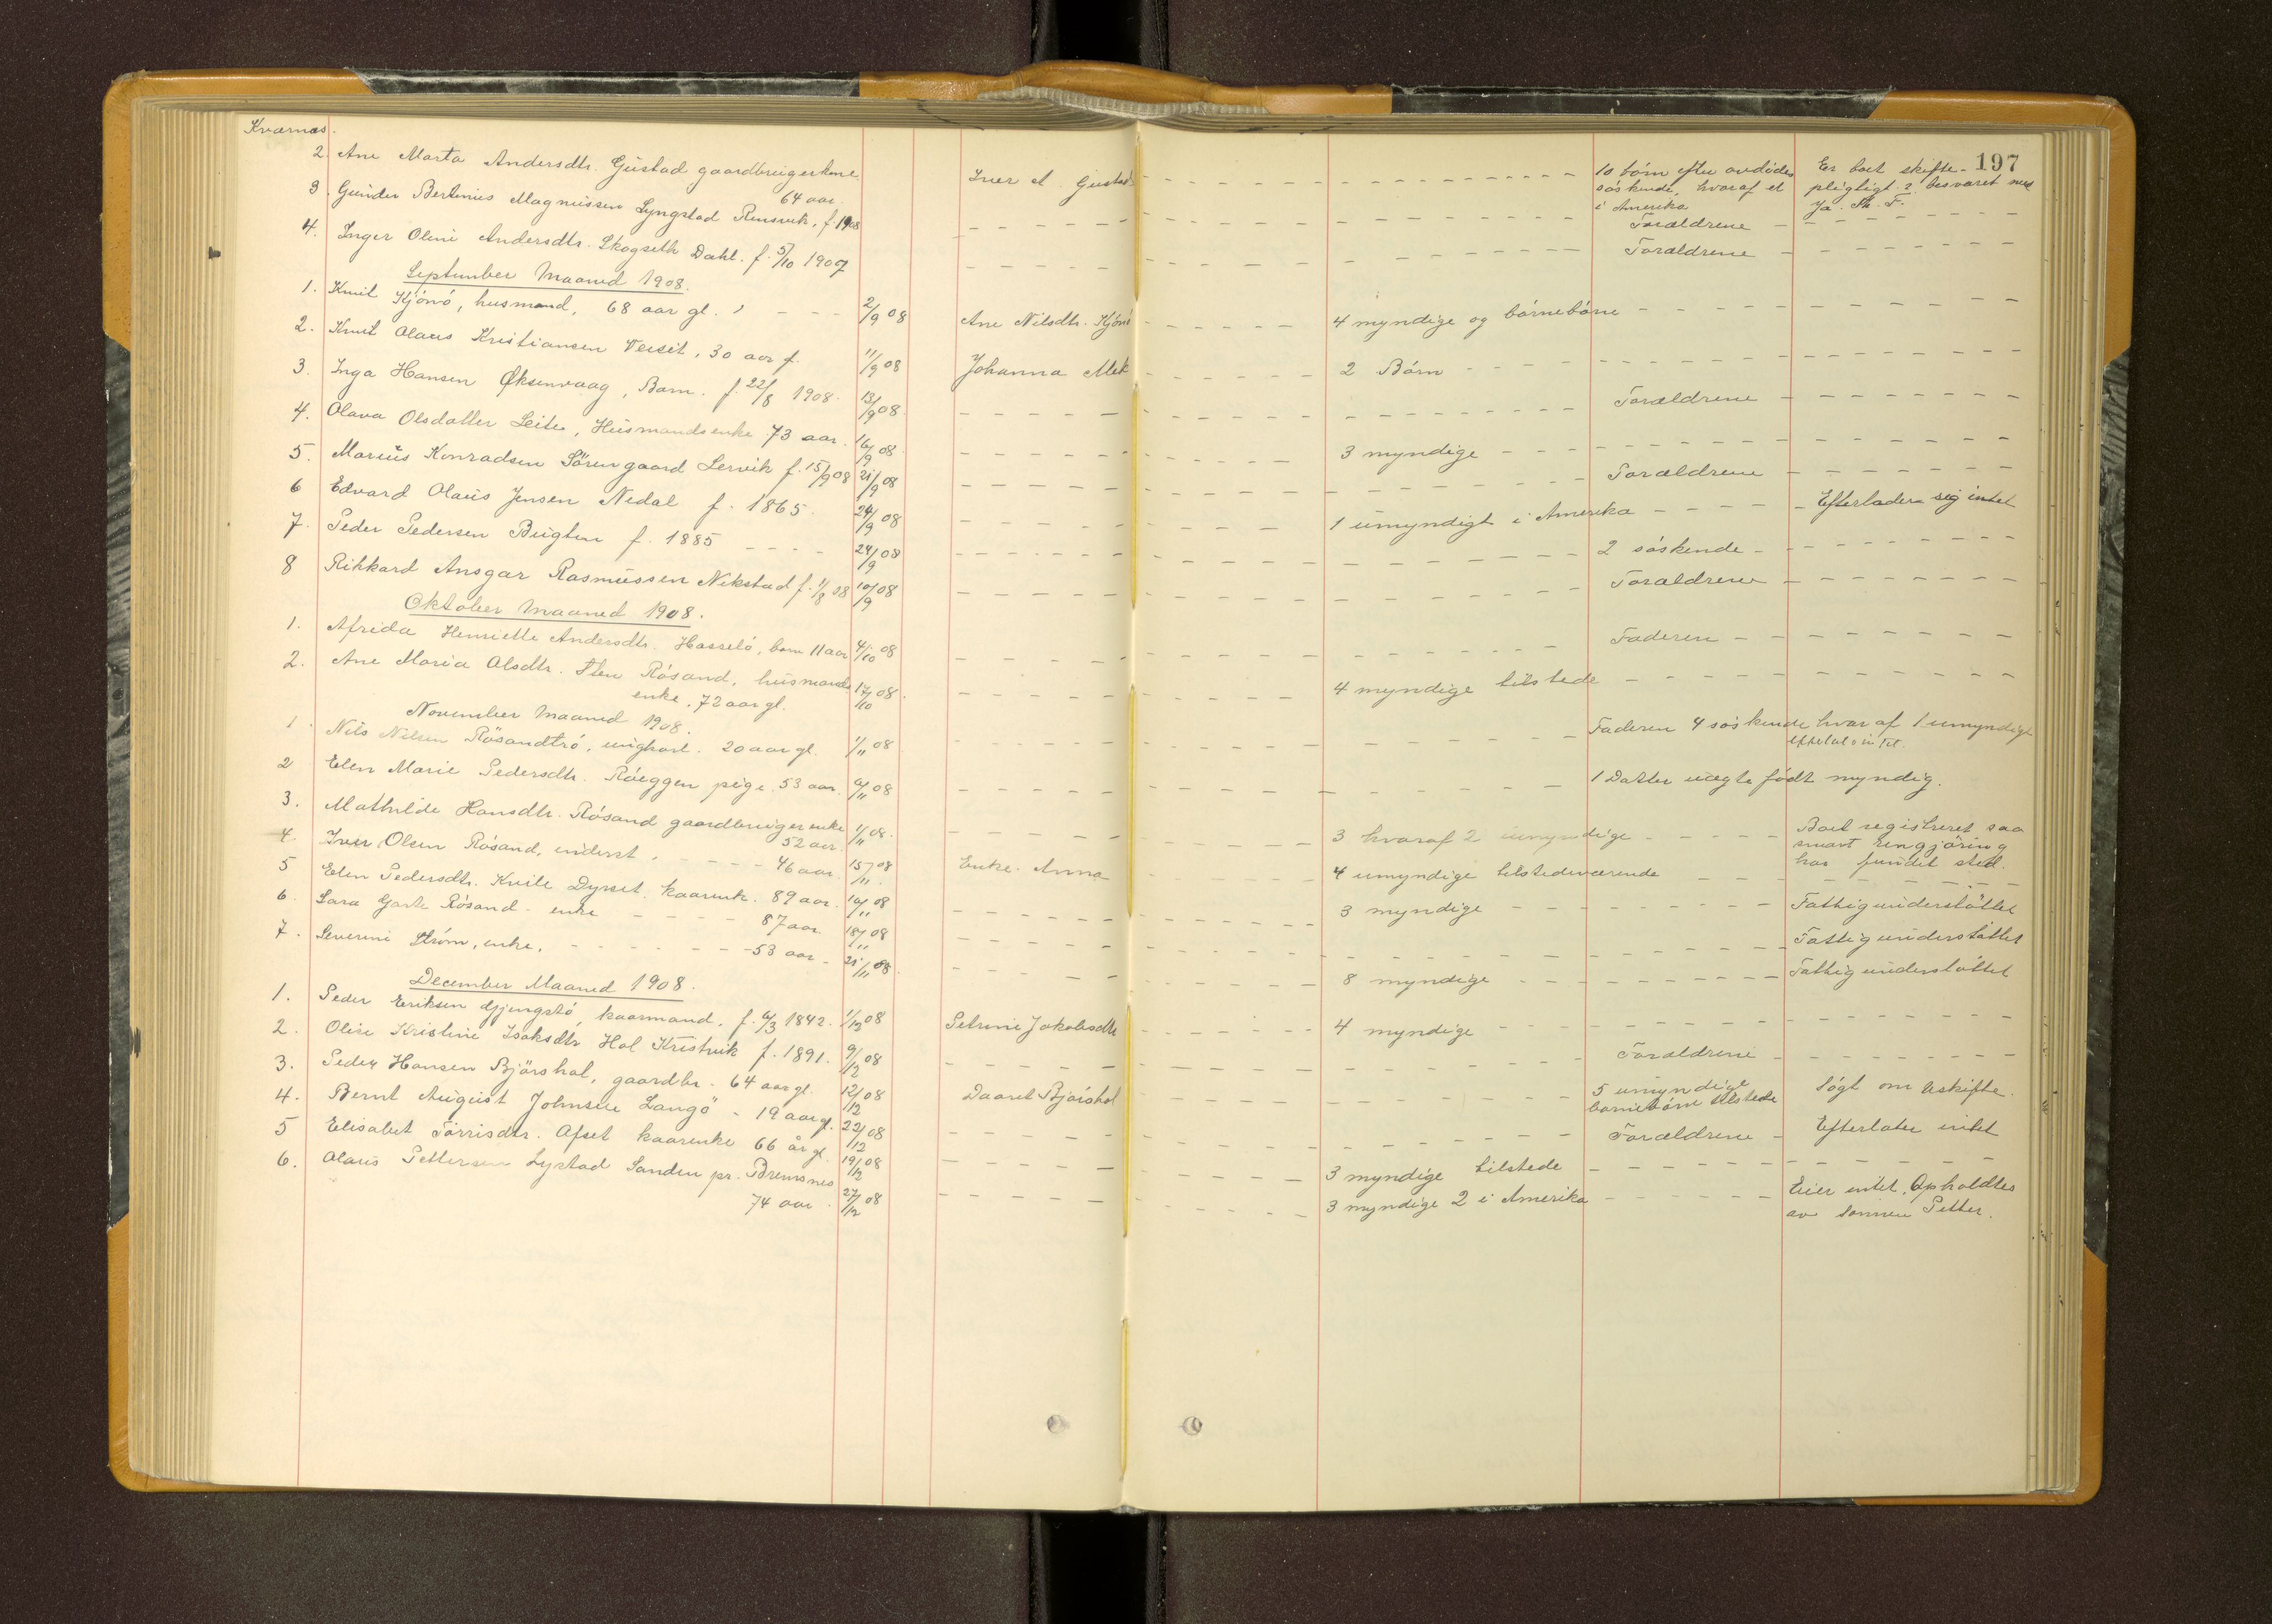 Kvernæs.
197
2. Ane Marta Andersdtr. Gustad gaardbrugerkone 64 aar. Iver A. Gustad 10 børn efter avdødes søskende, hvoraf et i Amerika Er boet skifte- pligtigt? besvaret med Ja. Th. F.
3. Gunder Bertinius Magnussen Lyngstad Rensvik, f. 1908 Forældrene
4. Inger Oline Andersdtr. Skogseth Dahl. f. 5/10 1907 Forældrene
September Maaned 1908.
1. Knut Kjønø, husmand, 68 aar gl. 2/9 08 Ane Nilsdtr. Kjønø 4 myndige og børnebørn
2. Knut Olaus Kristiansen Veiset, 30 aar f. 11/9 08 Johanna Mek 2 Børn
3. Inga Hansen Øksenvaag, Barn. f. 22/8 1908. 13/9 08 Forældrene
4. Olava Olsdatter Leite, Husmandsenke 73 aar. 16/9 08 3 myndige
5. Marius Konradsen Sørengaard Lervik f. 15/9 08 21/9 08 Forældrene
6 Edvard Olaus Jensen Nedal f. 1865. 24/9 08 1 umyndigt i Amerika Efterlader sig intet
7. Peder Pedersen Bugten f. 1885 24/9 08 2 søskende
8 Rikkard Ansgar Rasmussen Nekstad f. 1/8 08 10/9 08 Forældrene
Oktober Maaned 1908.
1. Afrida Henriette Andersdtr. Hasselø, barn 11 aar 4/10 08 Faderen
2. Ane Maria Olsdtr. Røsand, husmands enke, 72 aar gl. 17/10 08. 4 myndige tilstede
November Maaned 1908.
1. Nils Nilsen Røsandtrø, ungkarl. 20 aar gl. 1/11 08 Faderen 4 søskende hvor af 1 umyndigt
2 Elen Marie Pedersdtr. Røeggen pige 53 aar. 6/11 08 1 Datter uægte født myndig.
3. Mathilde Hansdtr. Røsand gaardbrugerenke 52 aar. 1/11 08. 3 hvoraf 2 umyndige Boet registreret saa snart rengjøring har fundet sted.
4 Iver Olsen Røsand, inderst, 46 aar. 15/11 08 Enke. Anna 4 umyndige tilstedeværende
5 Elen Pedersdtr. Kvile Dyrset. kaarenke. 89 aar. 10/11 08 3 myndige Fattigunderstøttet
6. Sara Røsand. enke 87 aar. 18/11 08 Fattigunderstøttet
7. Severine Strøm, enke, 53 aar. 21/11 08 8 myndige Fattigunderstøttet
December Maaned 1908.
1. Peder Eriksen Gjengstø kaarmand. f. 6/3 1842. 1/12 08 Petrine Jakobsdtr 4 myndige
2. Oline Kristine Isaksdtr. Hol Kristvik f. 1891. 9/12 08 Forældrene
3. Peder Hansen Bjørshol, gaardbr. 64 aar gl. 12/12 08 Daaret Bjørshol 5 umyndige barnebørn tilstede Søgt om uskifte.
4. Bernt August Johnsen Langø - 19 aar gl. 22/12 08 Forældrene Efterlater intet
5 Elisabet Tørrisdtr. Ofset kaarenke 66 år gl. 19/12 08 3 myndige tilstede
6. Olaus Pettersen Lystad Sanden pr. Bremsnes 74 aar. 27/12 08 3 myndige 2 i Amerika Eier intet. Opholdtes av sønnen Petter.